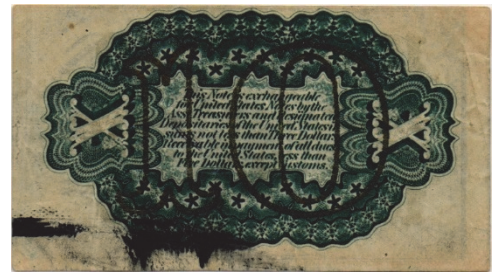 X
10
X
This Note is exchangeable
for United States Notes by the
Asst Treasurers and designated
Depositaries of the United States in
sums not less than Three Dollars.
Receivable in payment of all dues
to the United States, less than
Five Dollars, except Customs.